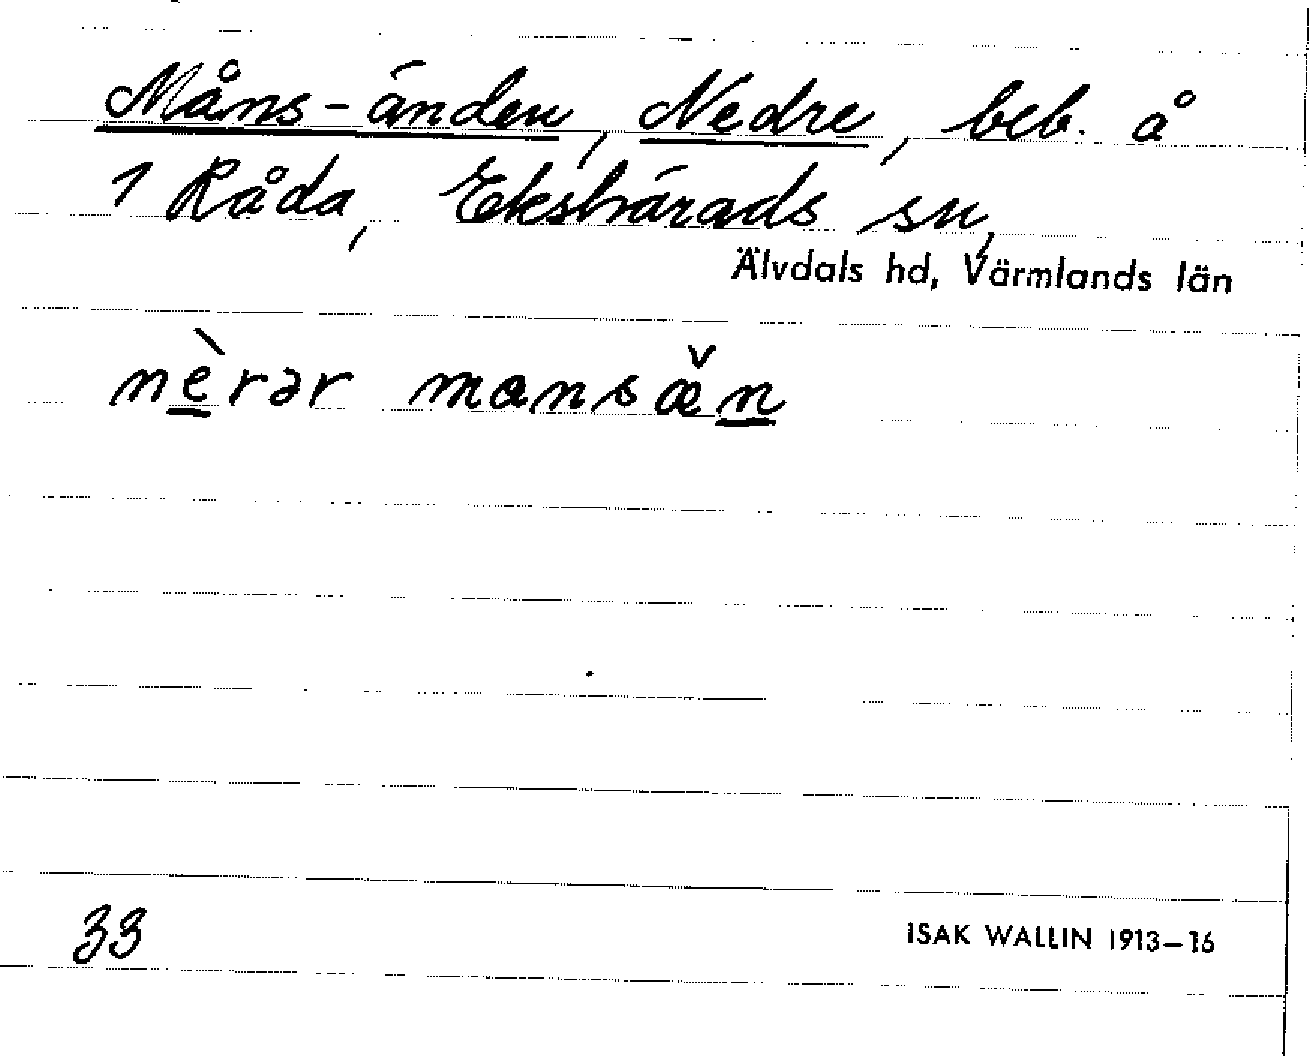 Måns-änden, Nedre, beb. å
1 Råda, Ekshärads sn,
Älvdals hd, Värmlands län
nèrər mansæ̌n
33
ISAK WALLIN 1913–16